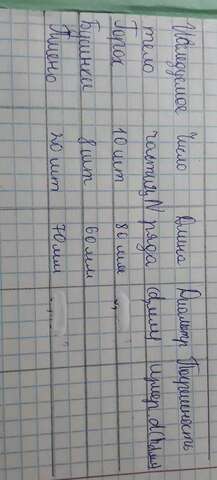 Исследуемое Число Длина Диаметр Погрешность
тело частиц N ряда
Горох 10 шт 80 мм
Бусинки 8 шт 60 мм
Пшено 20 шт 70 мм